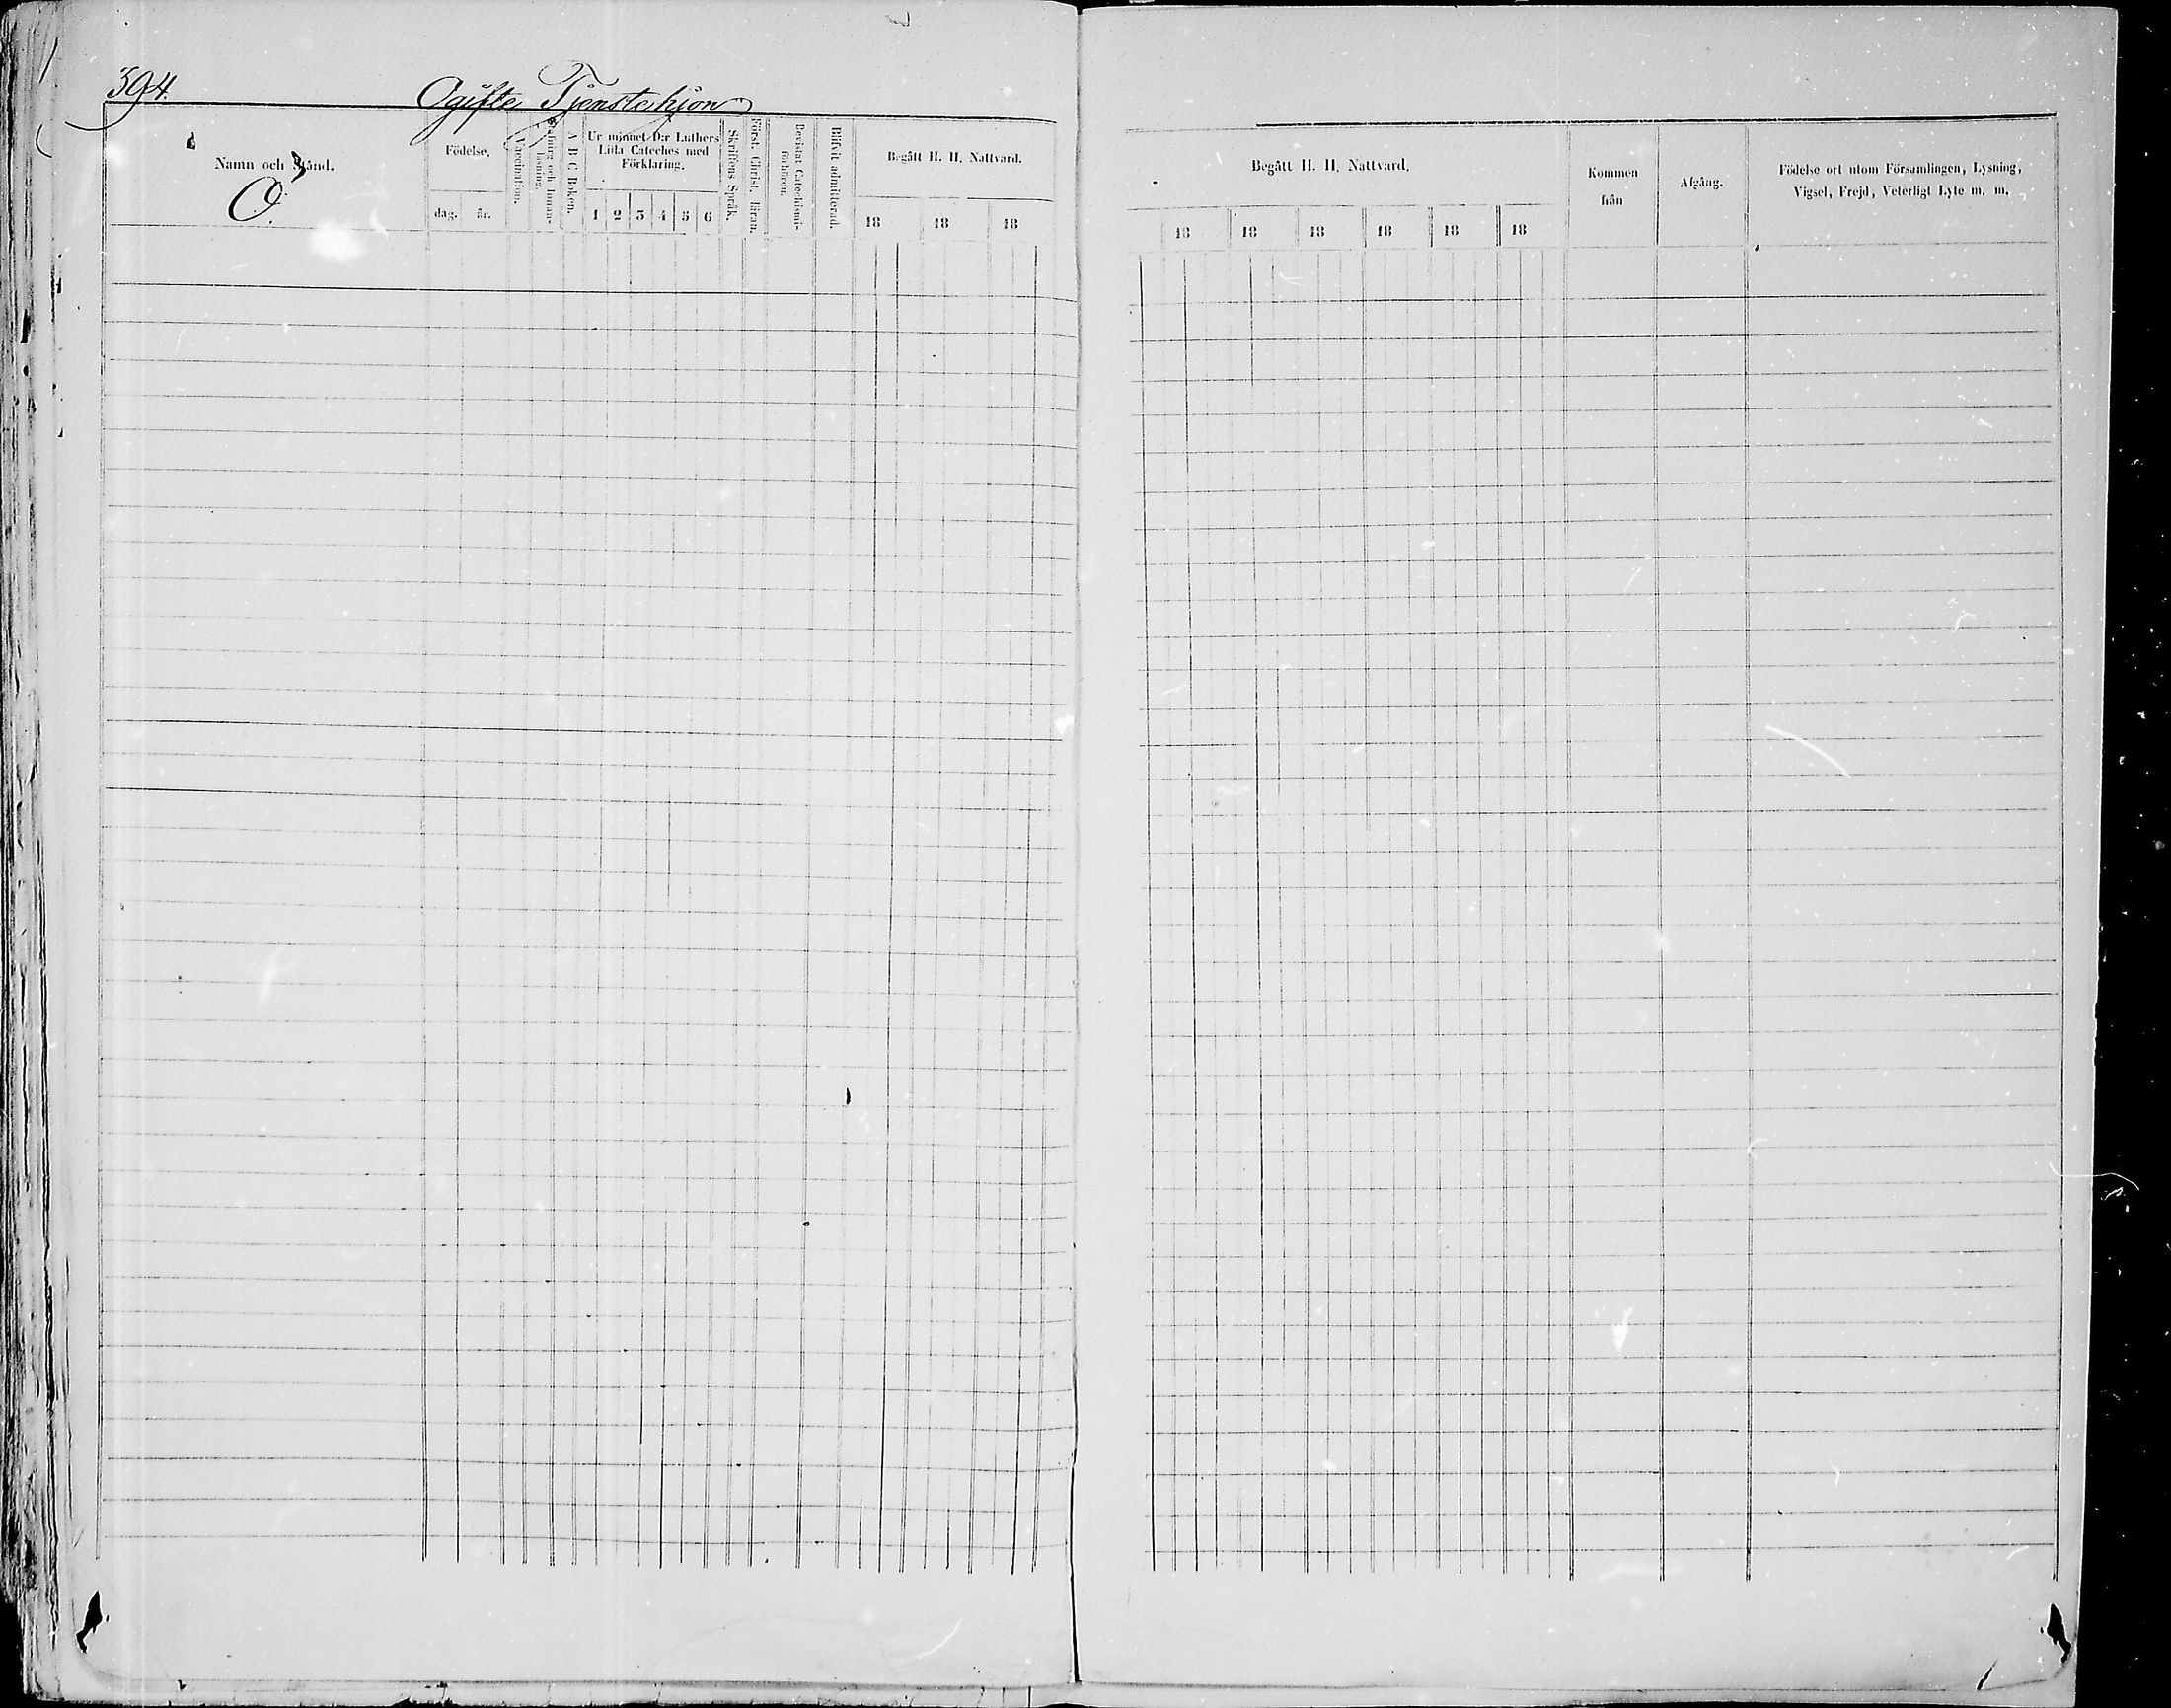 394.
Ogifte Tjenstehjon
Namn och Stånd.
O.
Födelse.
dag. år.
Vaccination.
läsning.
A B C Boken.
Ur minnet D:r Luthers
Lilla Cateches med
Förklaring.
1 2 3 4 5 6
Skriftens Språk.
Först. Christ. läran.
Bevistat Catechismi-
förhören.
Blifvit admitterad.
Begått H. H. Nattvard.
18 18 18
Begått H. H. Nattvard.
18 18 18 18 18 18
Kommen
från
Afgång.
Födelse ort utom Församlingen, Lysning,
Vigsel, Frejd, Veterligt Lyte m. m.